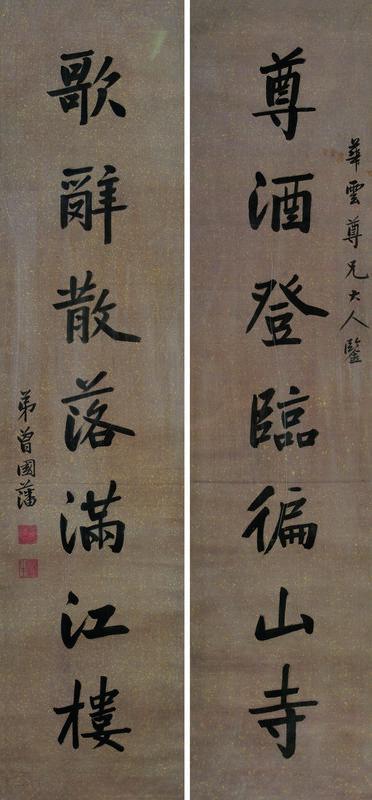 華雲尊兄大人鑒
尊酒登臨徧山寺
歌辭散落滿江樓
弟曾國藩